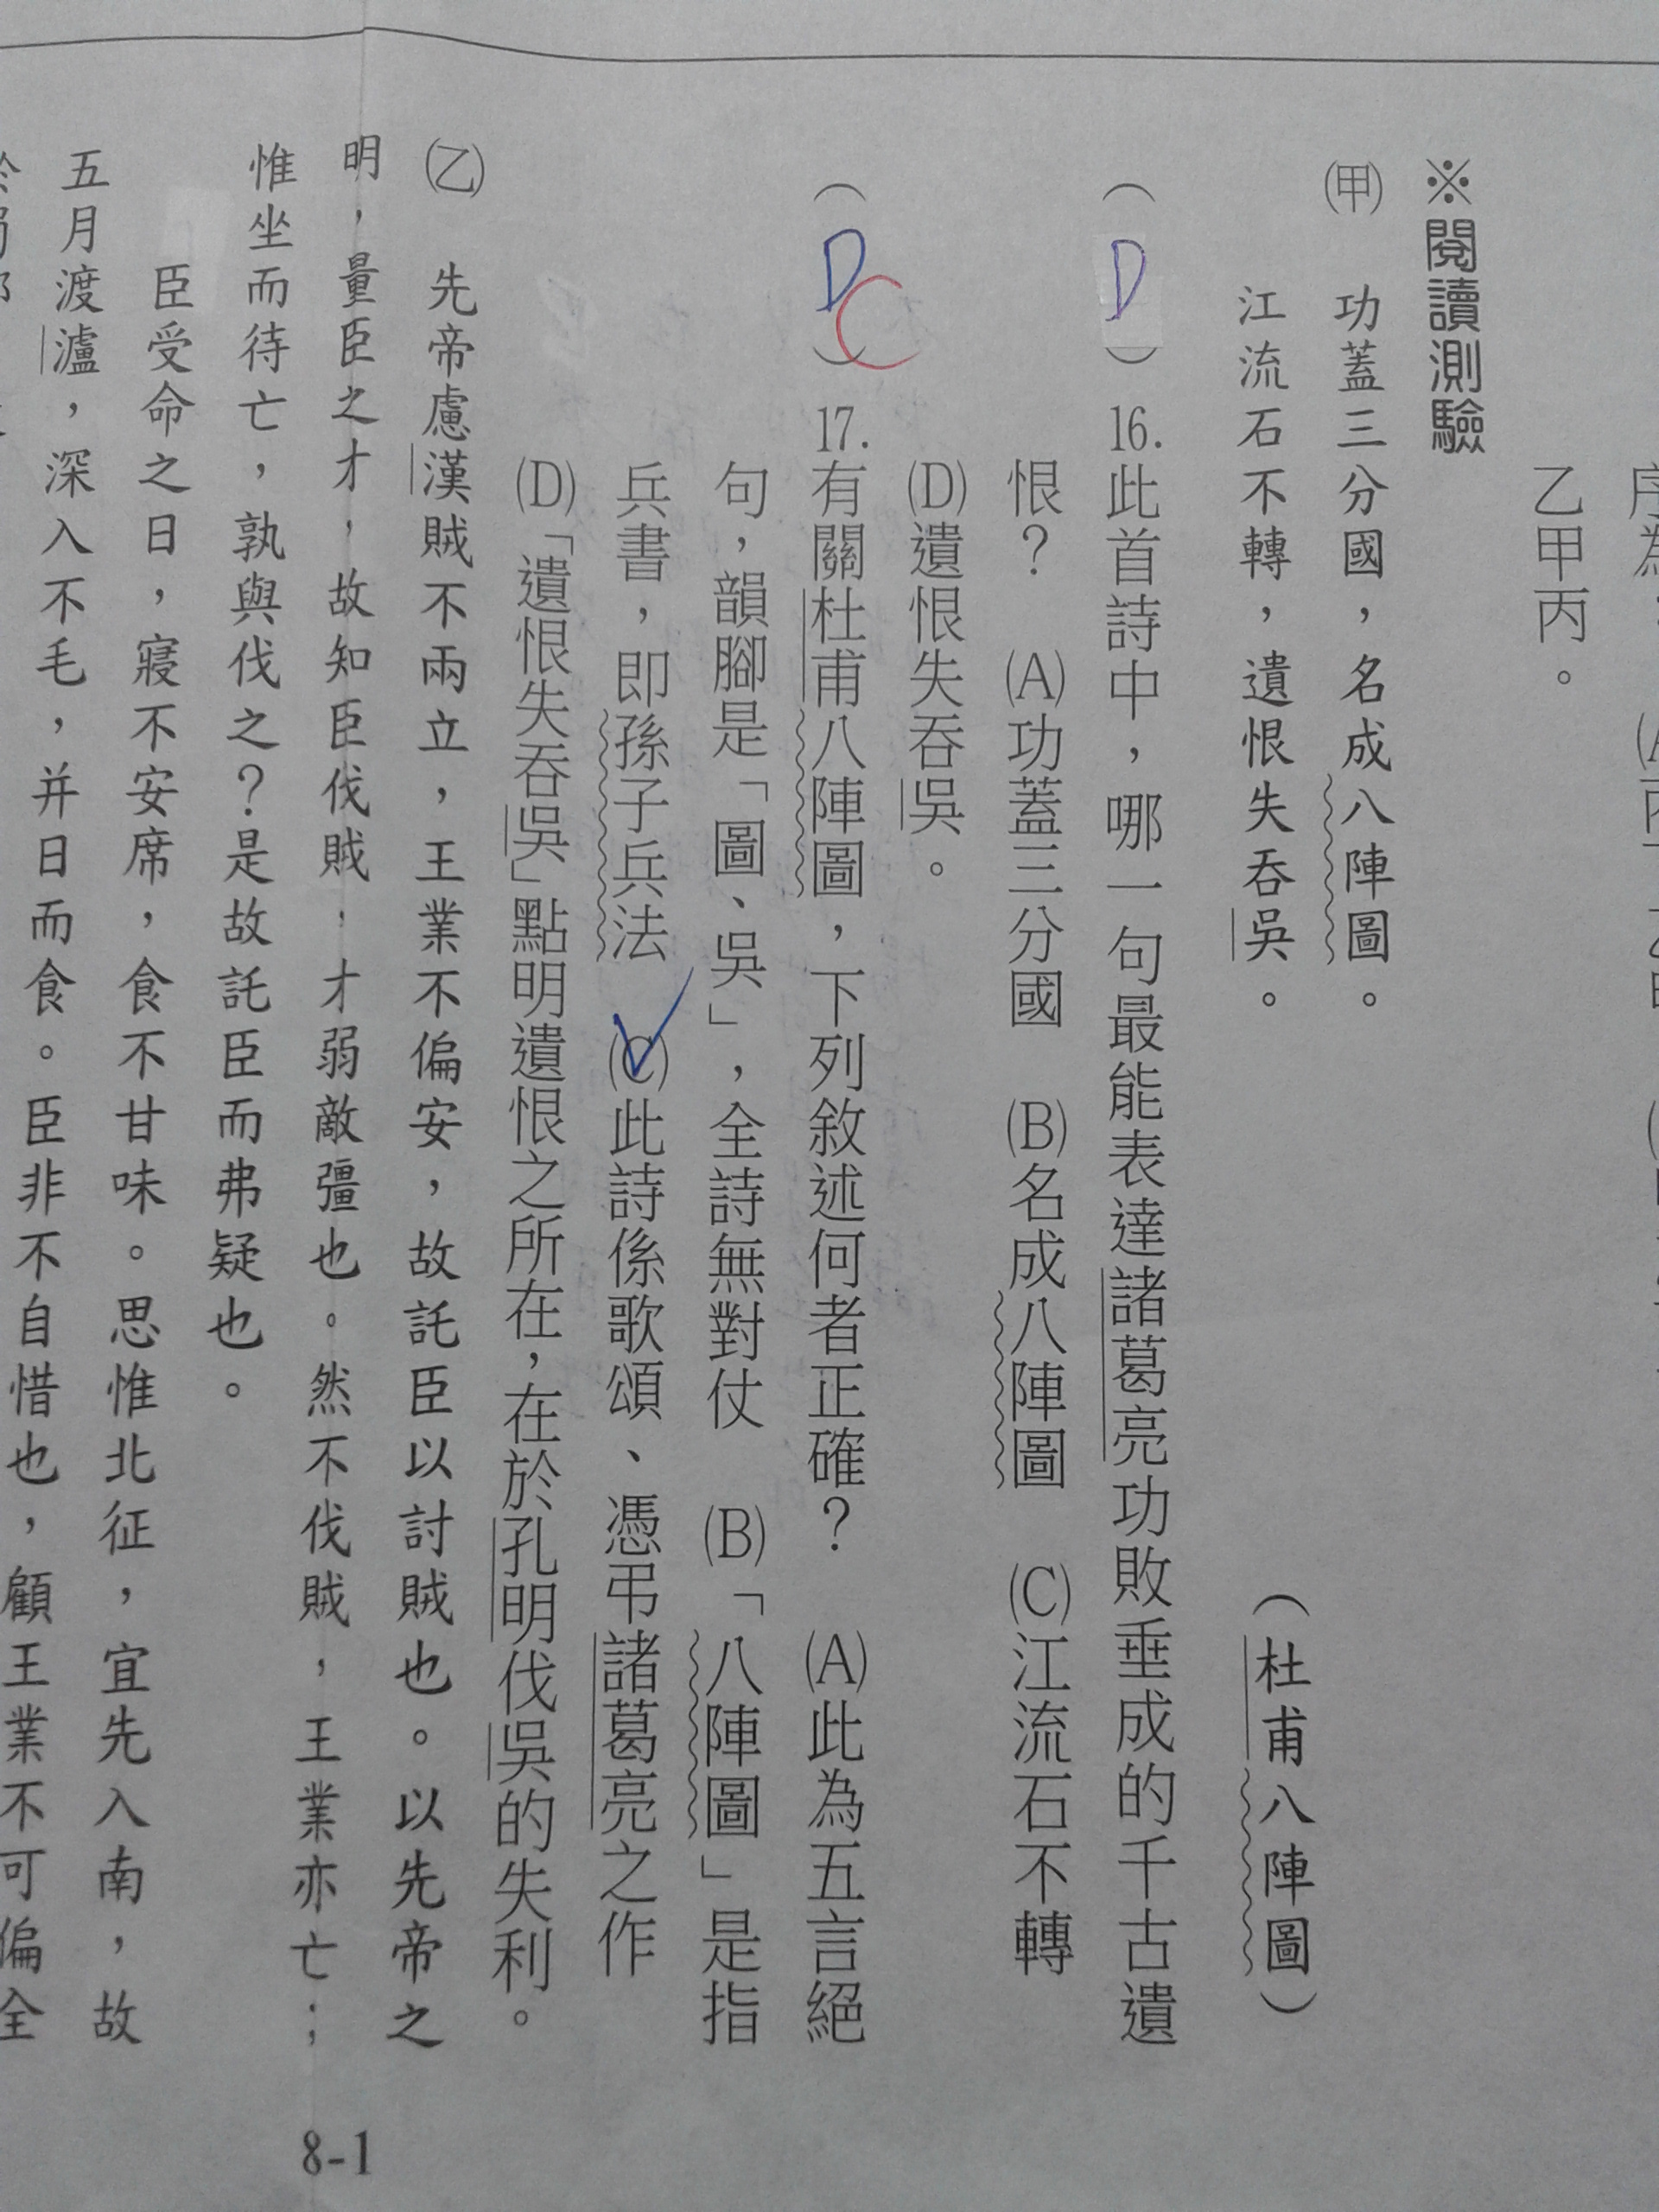 乙甲丙。
※閱讀測驗
㈙ 功蓋三分國，名成八陣圖。
江流石不轉，遺恨失吞吳。 （杜甫八陣圖）
（D）16.此首詩中，哪一句最能表達諸葛亮功敗垂成的千古遺
恨？ (A)功蓋三分國 (B)名成八陣圖 (C)江流石不轉
(D)遺恨失吞吳。
（D C）17.有關杜甫八陣圖，下列敘述何者正確？ (A)此為五言絕
句，韻腳是「圖、吳」，全詩無對仗 (B)「八陣圖」是指
兵書，即孫子兵法 (C)此詩係歌頌、憑弔諸葛亮之作
(D)「遺恨失吞吳」點明遺恨之所在，在於孔明伐吳的失利。
㈚ 先帝慮漢賊不兩立，王業不偏安，故託臣以討賊也。以先帝之
明，量臣之才，故知臣伐賊，才弱敵彊也。然不伐賊，王業亦亡；
惟坐而待亡，孰與伐之？是故託臣而弗疑也。
臣受命之日，寢不安席，食不甘味。思惟北征，宜先入南，故
五月渡瀘，深入不毛，并日而食。臣非不自惜也，顧王業不可偏全
8-1